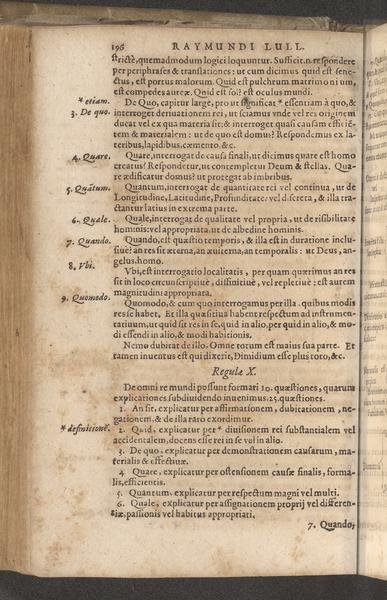 196 RAYMUNDI LULL.
strictè, quemadmodum logici loquuntur. Sufficit.n. respondere
per periphrases & translationes: ut cum dicimus quid est senectus,
est portus malorum. Quid est pulchrum matrimonium,
est compedes aureæ. Quid est sol? est oculus mundi.
* etiam.
3. De quo.
De Quo, capitur large, pro ut significat * essentiam à quo, &
interrogat deriuationem rei, ut sciamus vnde vel ex origine
ducat vel ex qua materia sit: & interrogat quasi causam efficiētem
& materialem: ut de quo est domus? Respondemus ex lateribus,
lapidibus, cæmento. &c.
4. Quare.
Quare, interrogat de causa finali, ut dicimus quare est homo
creatus? Respondetur, ut contempletur Deum & stellas. Quare
ædificatur domus? ut protegat ab imbribus.
5. Quātum.
Quantum, interrogat de quantitate rei vel continua, ut de
Longitudine, Latitudine, Profunditate: vel discreta, & illa tractantur
latius in extrema parte.
6. Quale.
Quale, interrogat de qualitate vel propria, ut de risibilitate
hominis: vel appropriata, ut de albedine hominis.
7. Quando.
Quando, est quæstio temporis, & illa est in duratione inclusiue:
an res sit æterna, an æuiterna, an temporalis: ut Deus, angelus,
homo.
8. Vbi.
Vbi, est interrogatio localitatis, per quam quærimus an res
sit in loco circunscriptiuè, diffinitiuè, vel repletiuè: est autem
magnitudini appropriata.
9. Quomodo.
Quomodo, & cum quo, interrogamus per illa. quibus modis
res se habet. Et illa quæsitiua habent respectum ad instrumentatiuum,
ut quid sit res in se, quid in alio, per quid in alio, & modi
essendi in alio, & modi habitionis.
Nemo dubitat de illo. Omne totum est maius sua parte. Et
tamen inuentus est qui dixerit, Dimidium esse plus toto, &c.
Regula X.
De omni re mundi possunt formari 10. quæstiones, quarum
explicationes subdiuidendo inuenimus. 25. quæstiones.
1. An sit, explicatur per affirmationem, dubitationem, negationem.
& de illa raro exordimur.
* definitionē.
2. Quid, explicatur per * diuisionem rei substantialem vel
accidentalem, docens esse rei in se vel in alio.
3. De quo, explicatur per demonstrationem causarum, materialis
& effectiuæ.
4 Quare, explicatur per ostensionem causæ finalis, formalis,
efficientis.
5. Quantum, explicatur per respectum magni vel multi.
6. Quale, explicatur per assignationem proprij vel differentiæ,
passionis vel habitus appropriati.
7. Quando,